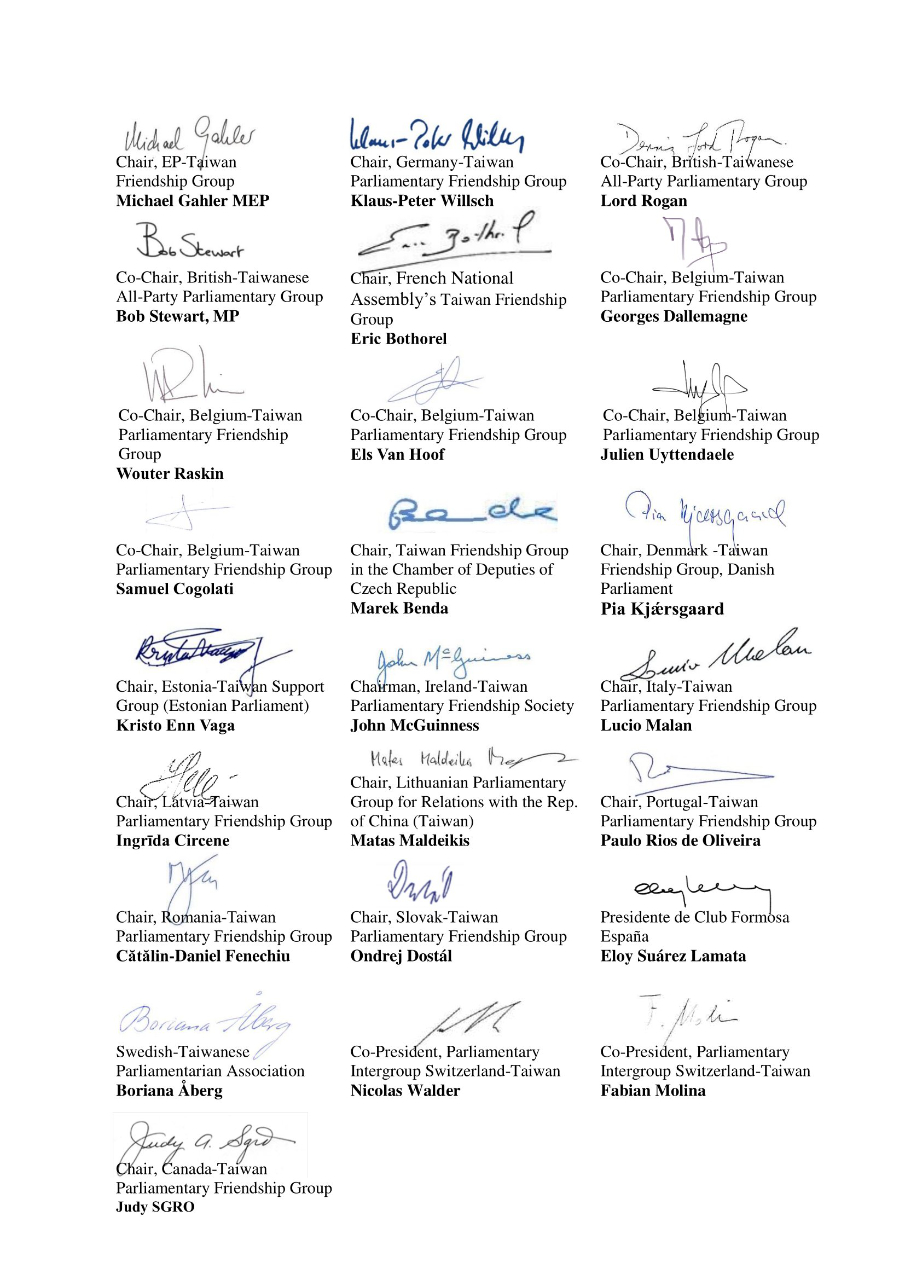 Michael Gahler
Chair, EP-Taiwan
Friendship Group
Michael Gahler MEP
Klaus-Peter Willsch
Chair, Germany-Taiwan
Parliamentary Friendship Group
Klaus-Peter Willsch
Dennis Lord Rogan
Co-Chair, British-Taiwanese
All-Party Parliamentary Group
Lord Rogan
Bob Stewart
Co-Chair, British-Taiwanese
All-Party Parliamentary Group
Bob Stewart, MP
Eric Bothorel
Chair, French National
Assembly’s Taiwan Friendship
Group
Eric Bothorel
Co-Chair, Belgium-Taiwan
Parliamentary Friendship Group
Georges Dallemagne
Co-Chair, Belgium-Taiwan
Parliamentary Friendship
Group
Wouter Raskin
Co-Chair, Belgium-Taiwan
Parliamentary Friendship Group
Els Van Hoof
Co-Chair, Belgium-Taiwan
Parliamentary Friendship Group
Julien Uyttendaele
Co-Chair, Belgium-Taiwan
Parliamentary Friendship Group
Samuel Cogolati
Benda
Chair, Taiwan Friendship Group
in the Chamber of Deputies of
Czech Republic
Marek Benda
Pia Kjaersgaard
Chair, Denmark -Taiwan
Friendship Group, Danish
Parliament
Pia Kjǽrsgaard
Chair, Estonia-Taiwan Support
Group (Estonian Parliament)
Kristo Enn Vaga
John McGuinness
Chairman, Ireland-Taiwan
Parliamentary Friendship Society
John McGuinness
Lucio Malan
Chair, Italy-Taiwan
Parliamentary Friendship Group
Lucio Malan
Chair, Latvia-Taiwan
Parliamentary Friendship Group
Ingrīda Circene
Matas Maldeikis
Chair, Lithuanian Parliamentary
Group for Relations with the Rep.
of China (Taiwan)
Matas Maldeikis
Chair, Portugal-Taiwan
Parliamentary Friendship Group
Paulo Rios de Oliveira
Chair, Romania-Taiwan
Parliamentary Friendship Group
Cătălin-Daniel Fenechiu
Chair, Slovak-Taiwan
Parliamentary Friendship Group
Ondrej Dostál
Presidente de Club Formosa
España
Eloy Suárez Lamata
Boriana Åberg
Swedish-Taiwanese
Parliamentarian Association
Boriana Åberg
Co-President, Parliamentary
Intergroup Switzerland-Taiwan
Nicolas Walder
F. Molina
Co-President, Parliamentary
Intergroup Switzerland-Taiwan
Fabian Molina
Judy A. Sgro
Chair, Canada-Taiwan
Parliamentary Friendship Group
Judy SGRO